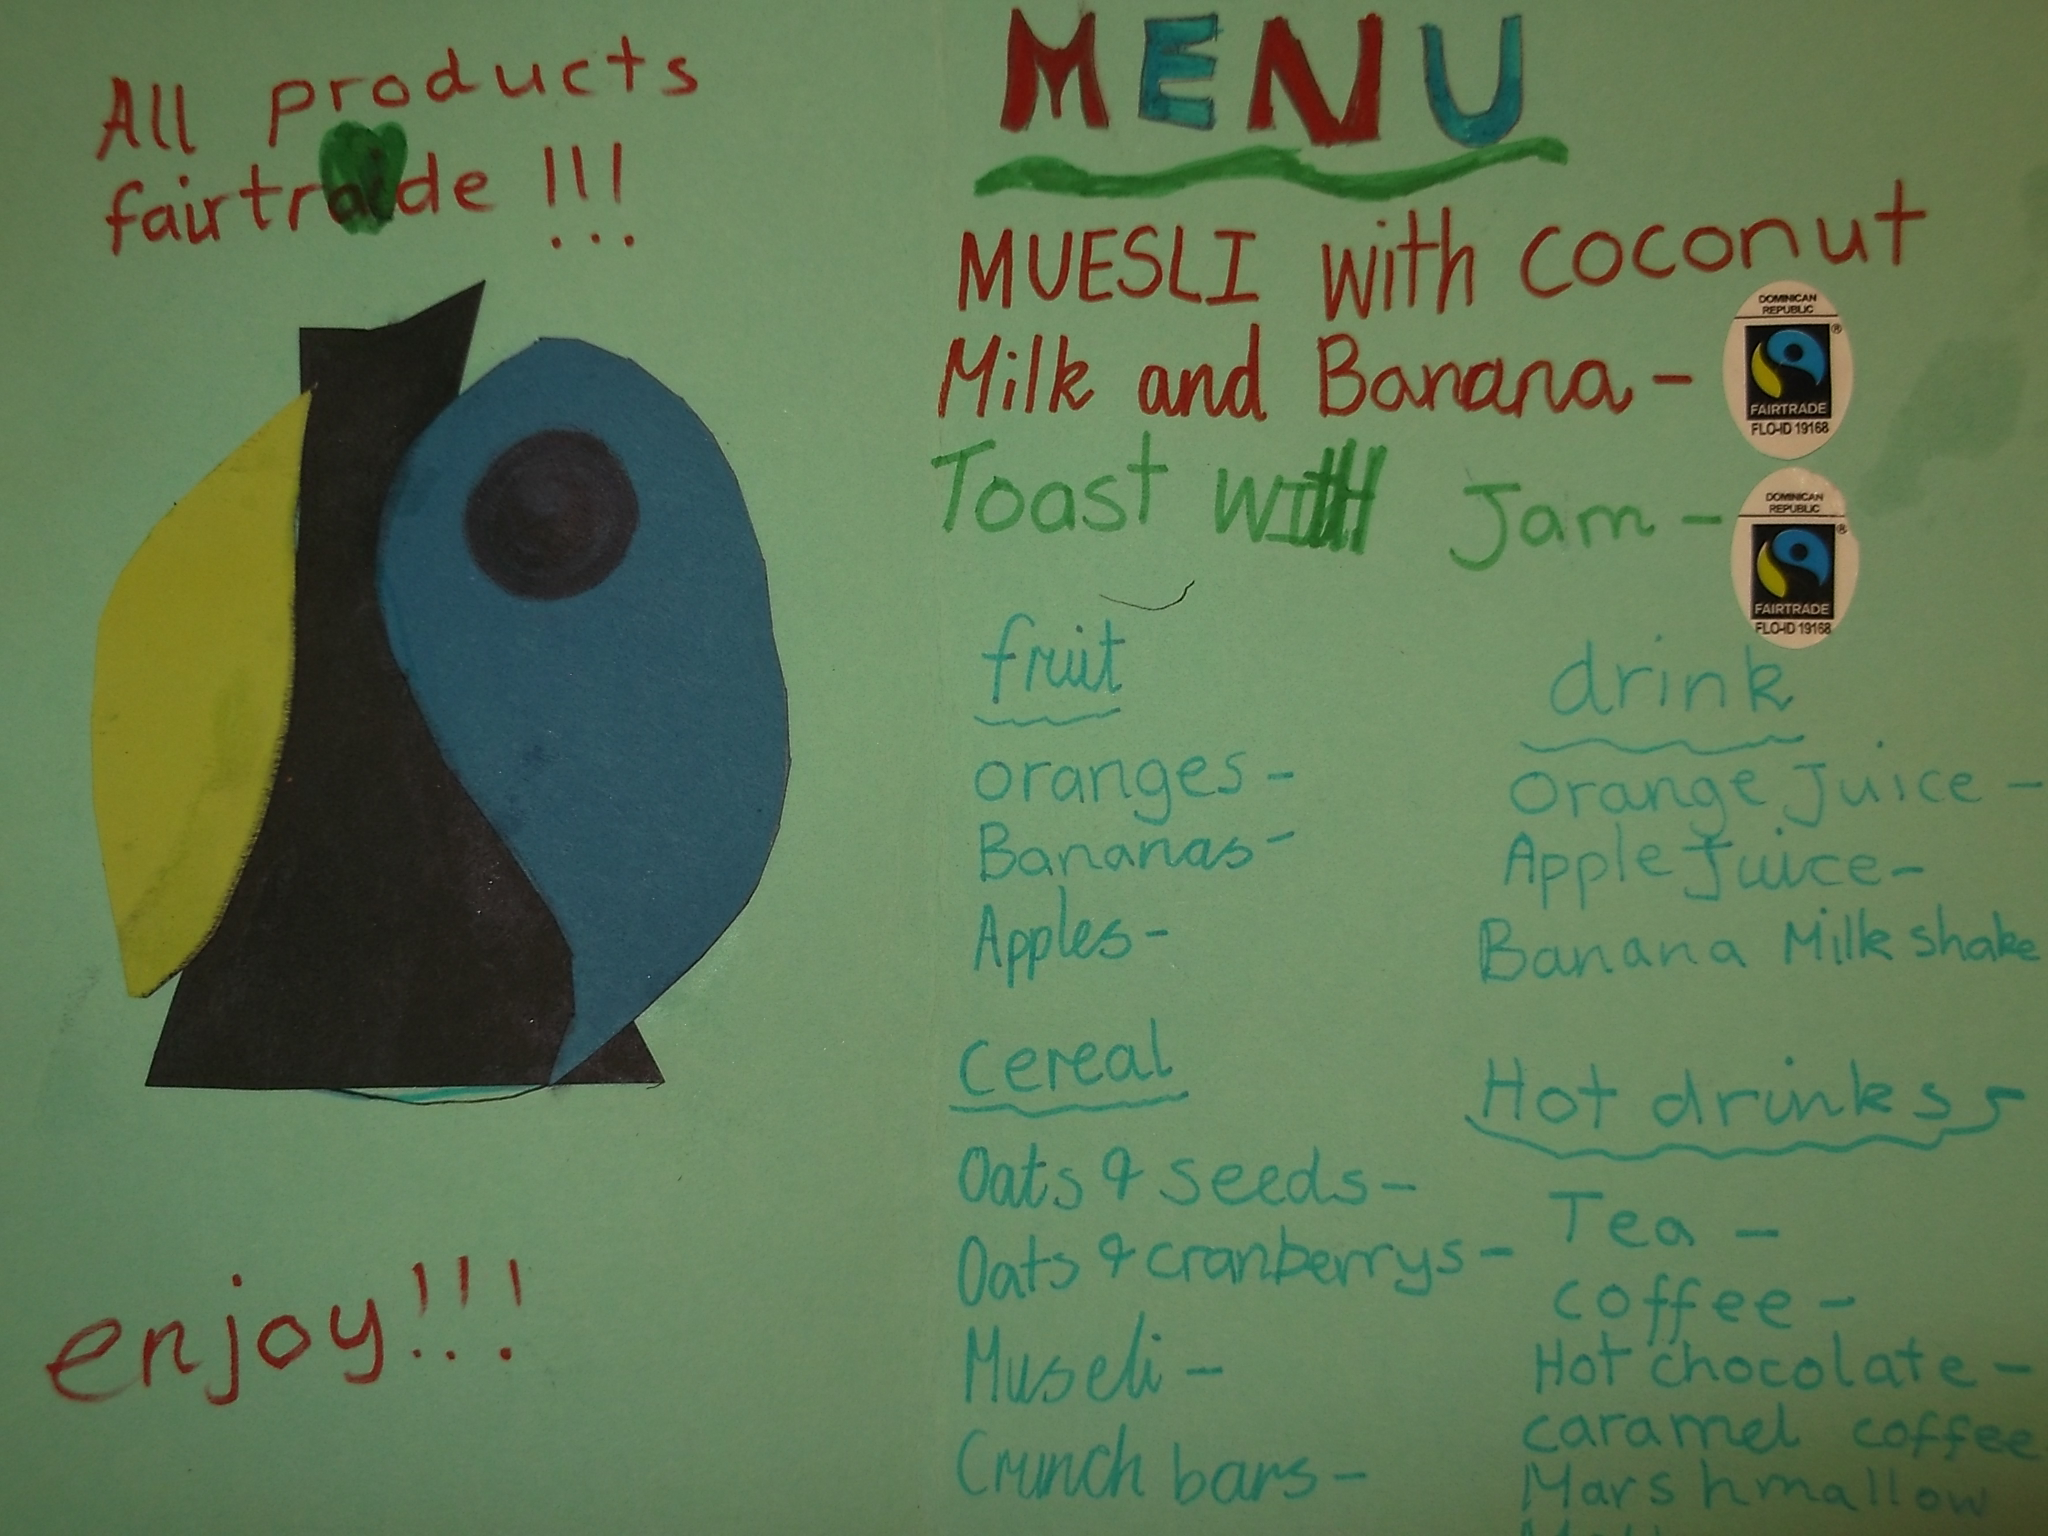 All products
fairtrade !!!
enjoy!!!
MENU
MUESLI with coconut
Milk and Banana -
DOMINICAN
REPUBLIC
®
FAIRTRADE
FLO-ID 19168
Toast with Jam -
DOMINICAN
REPUBLIC
®
FAIRTRADE
FLO-ID 19168
fruit
oranges -
Bananas -
Apples -
cereal
Oats & seeds -
Oats & cranberrys -
Museli -
Crunch bars -
drink
Orange Juice -
Apple Juice -
Banana Milkshake
Hot drinks
Tea -
coffee -
Hot chocolate -
caramel coffee
Marshmallow